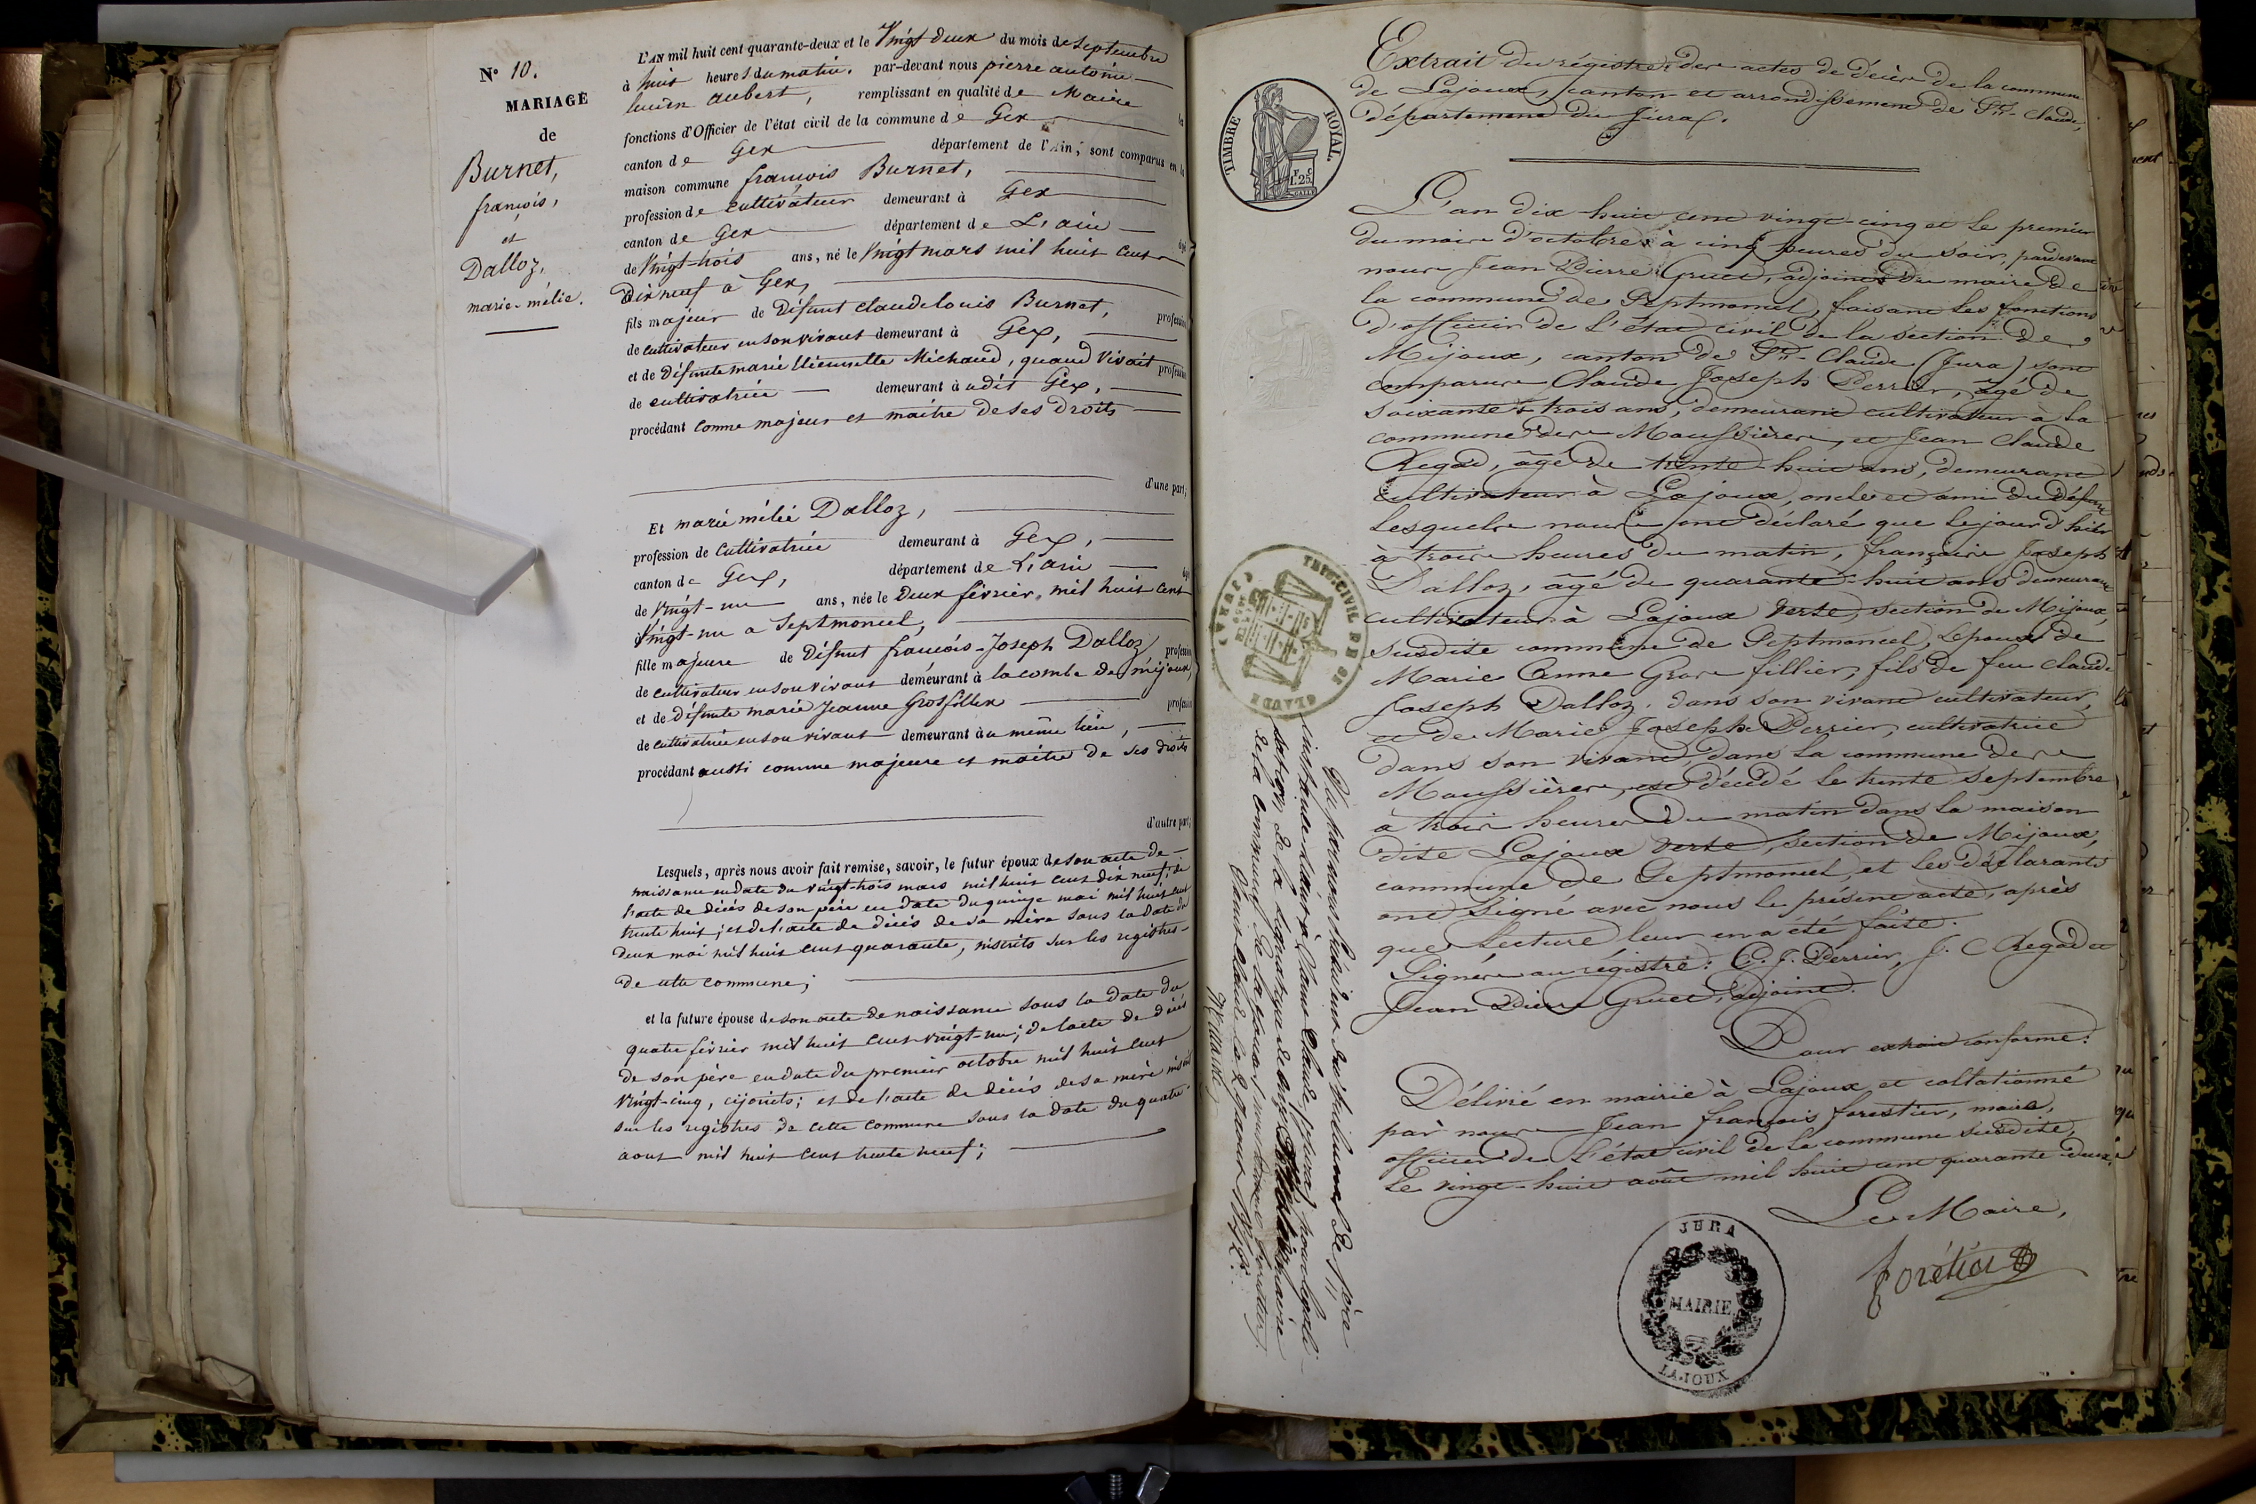 N° 10.
MARIAGE
de
Burnet,
françois,
et
Dalloz,
marie-mélie.
L'AN mil huit cent quarante-deux et le Vingt deux du mois de septembre
à huit heures du matin. par-devant nous pierre antoine
lucien aubert, remplissant en qualité de Maire la
fonctions d'Officier de l'état civil de la commune de Gex
canton de Gex département de l'Ain; sont comparus en la
maison commune françois Burnet,
profession de cultivateur demeurant à Gex
canton de Gex département de L'ain âgé
de Vingt-trois ans, né le Vingt mars mil huit cent
dix neuf à Gex,
fils majeur de Défunt claude louis Burnet, profession
de cultivateur en son vivant demeurant à Gex,
et de Défunte marie étiennette Michaud, quand Vivait profession
de cultivatrice demeurant à udit Gex,
procédant comme majeur et maitre de ses droits
d'une part;
Et marie mélie Dalloz,
profession de cultivatrice demeurant à Gex,
canton de Gex, département de L'ain âgé
de Vingt-un ans, née le Deux février mil huit cent
Vingt-un a Septmoncel,
fille majeure de Défunt françois-Joseph Dalloz profession
de cultivateur en son vivant demeurant à la combe de mijoux,
et de Défunte marie Jeanne Grosfillex profession
de cultivatrice en son vivant demeurant à u même lieu,
procédant aussi comme majeure et maitre de ses droits
d'autre part;
Lesquels, après nous avoir fait remise, savoir, le futur époux de son acte de
naissance en date du vingt-trois mars mil huit cent dix neuf; de
l'acte de décès de son père en date du quinze mai mil huit cent
trente huit; et de l'acte de décès de sa mère sous la date du
deux mai mil huit cent quarante, inscrits sur les registres
de cette commune;
et la future épouse de son acte de naissance sous la date du
quatre février mil huit cent vingt-un; de l'acte de décès
de son père en date du premier octobre mil huit cent
vingt-cinq, cijoints; et de l'acte de décès de sa mère inscrit
sur les registres de cette commune sous la date du quatre
aout mil huit cent trente neuf;
TIMBRE ROYAL.
1.25.
Extrait du régistre des actes de décès de la commune
de Lajoux, canton et arrondissement de St-Claude,
département du Jura.
L'an dix huit cent vingt-cinq et le premier
du mois d'octobre à cinq heures du soir, pardevant
nous Jean Pierre Gruet, adjoint du maire de
la commune de Septmoncel, faisant les fonctions
d'officier de l'état civil de la section de
Mijoux, canton de St-Claude (Jura) sont
comparus Claude Joseph Perrier, âgé de
soixante & trois ans, demeurant cultivateur à la
commune des Moussières, et Jean Claude
Regad, âgé de trente-huit ans, demeurant
cultivateur à Lajoux, oncle et ami du défunt
lesquels nous ont déclaré que le jour d'hier
à trois heures du matin, françois Joseph
Dalloz, âgé de quarante-huit ans demeurant
cultivateur à Lajoux verte, section de Mijoux,
susdite commune de Septmoncel, époux de
Marie Anne Gros fillier, fils de feu Claude
Joseph Dalloz, dans son vivant cultivateur,
et de Marie Josephe Perrier, cultivatrice
dans son vivant, dans la commune des
Moussières, est décédé le trente septembre
à trois heures du matin dans la maison
dite Lajoux verte, section de Mijoux,
commune de Septmoncel, et les déclarants
ont signé avec nous le présent acte, après
que lecture leur en a été faite.
Signés au régistre: C. J. Perrier, J. C Regad et
Jean Pierre Gruet, adjoint.
Pour extrait conforme:
Délivré en mairie à Lajoux et collationné
par nous Jean françois forestier, maire,
officier de l'état civil de la commune susdite,
le vingt-huit août mil huit cent quarante-deux.
Le Maire,
forétier
JURA
MAIRIE
LAJOUX
TRIB. CIVIL DE ST CLAUDE
(JURA)
Vu par nous Président du tribunal de 1ère
instance séant à Saint Claude (Jura) pour légali-
sation de la signature de Mr forestier maire
de la commune de Lajoux